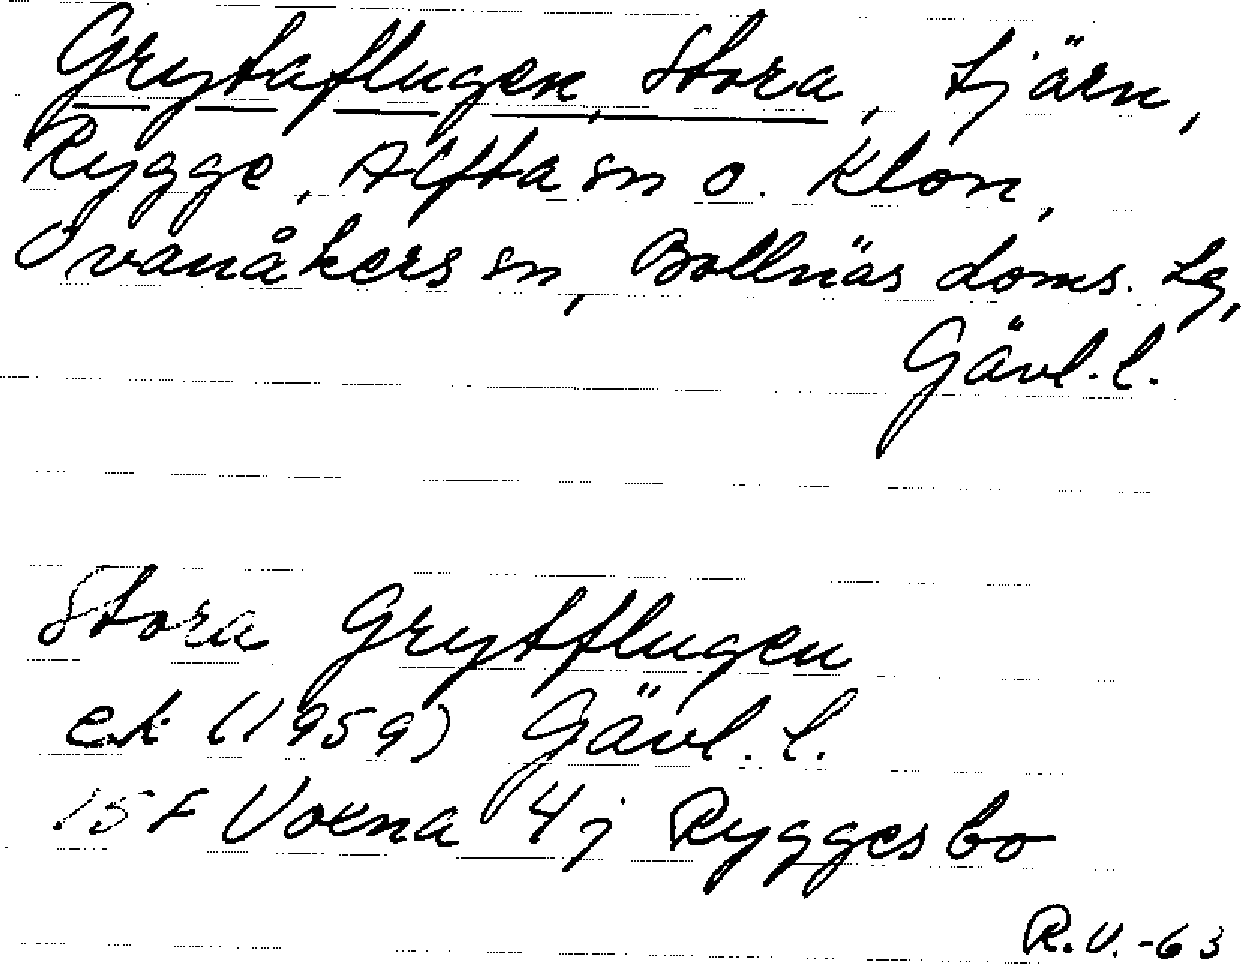 Grytaflugen, Stora, tjärn,
Rygge, Alfta sn o. Klon,
Ovanåkers sn, Bollnäs doms. lg,
Gävl. l.
Stora Grytflugen
ek (1959) Gävl. l.
15F Voxna 4j Ryggesbo
R.V.-63